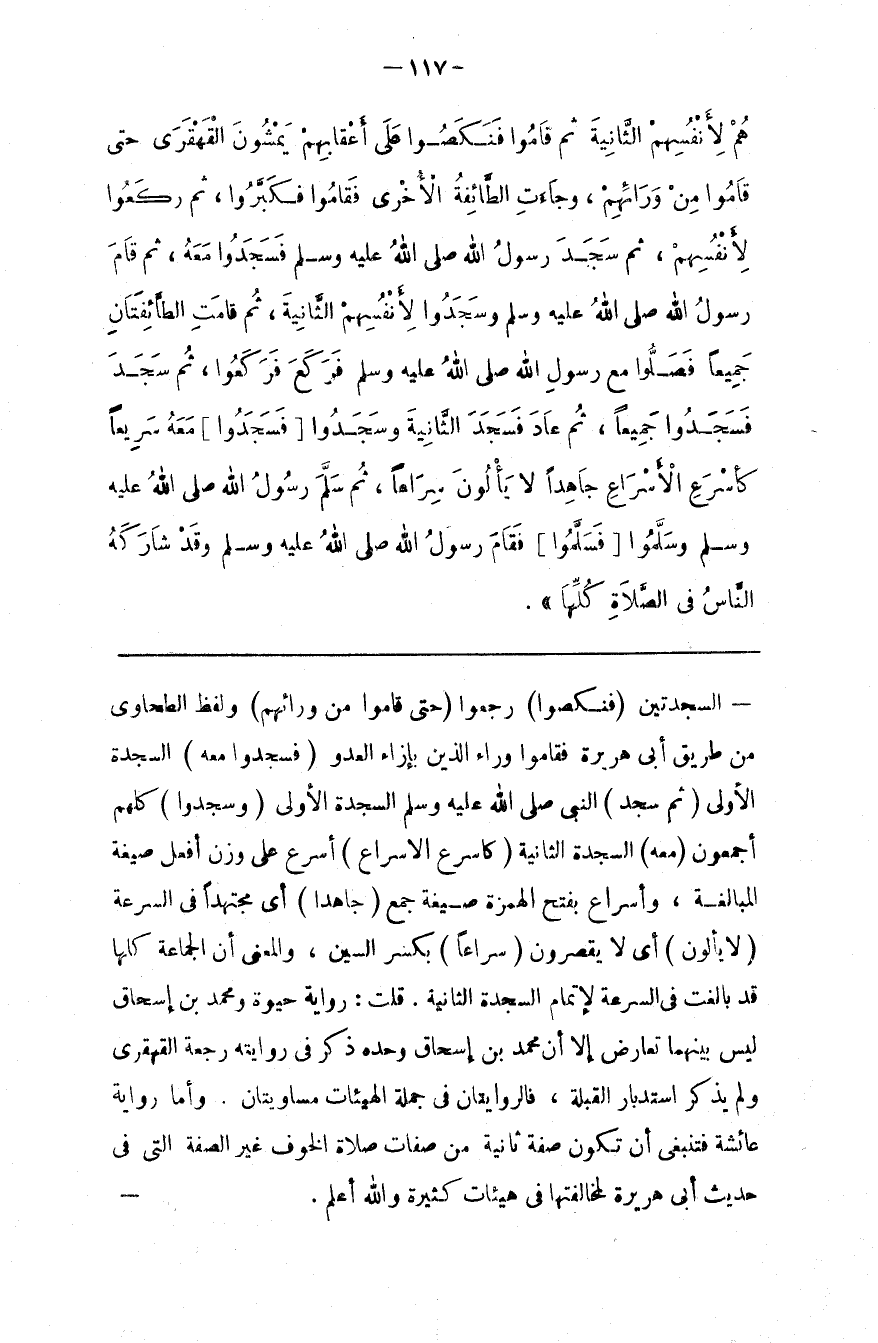 — ١١٧ -
هُمْ لِأَنْفُسِهِمْ الثَّانِيَةَ ثم قَامُوا فَنَكَصُوا عَلَى أَعْقابِهِمْ يَمْشُونَ الْقَهْقَرَى حتى
قَامُوا مِنْ وَرَائِهِمْ ، وجاءَتِ الطَّائِفةُ الْأُخْرى فَقامُوا فكَبَّرُوا ، ثم ركَعُوا
لِأَنْفُسِهِمْ ، ثم سَجَدَ رسولُ الله صلى اللهُ عليه وسلم فَسَجَدُوا مَعَهُ ، ثم قَامَ
رسولُ الله صلى اللهُ عليه وسلم وسَجَدُوا لِأَنْفُسِهِمْ الثَّانِيَةَ ، ثُم قامَتِ الطَّائِفَتَانِ
جَمِيعاً فَصَلُّوا مع رسولِ الله صلى اللهُ عليه وسلم فَرَكَعَ فَرَكَعُوا ، ثُم سَجَدَ
فَسَجَدُوا جَمِيعاً ، ثُم عاَدَ فَسَجَدَ الثَّانِيةَ وسَجَدُوا [ فَسَجَدُوا ] مَعَهُ سَرِيعاً
كأسْرَعِ الْأَسْرَاعِ جاَهِداً لا يَأْلُونَ سِرَاعاً ، ثُم سَلَّمَ رسُولُ الله صلى اللهُ عليه
وسلم وسَلَّمُوا [ فَسَلَّمُوا ] فَقَامَ رسولُ الله صلى اللهُ عليه وسلم وقَدْ شارَكَهُ
النَّاسُ فى الصَّلاَةِ كُلِّهَا » .
— السجدتين (فنكصوا) رجعوا (حتى قاموا من ورائهم) ولفظ الطحاوى
من طريق أبى هريرة فقاموا وراء الذين بإزاء العدو ( فسجدوا معه ) السجدة
الأولى ( ثم سجد ) النبى صلى الله عليه وسلم السجدة الأولى ( وسجدوا ) كلهم
أجمعون (معه) السجدة الثانية ( كاسرع الاسراع ) أسرع على وزن أفعل صيغة
المبالغة ، وأسراع بفتح الهمزة صيغة جمع ( جاهدا ) أى مجتهداً فى السرعة
( لا يألون ) أى لا يقصرون ( سراعاً ) بكسر السين ، والمعنى أن الجماعة كلها
قد بالغت فى السرعة لإتمام السجدة الثانية . قلت : رواية حيوة ومحمد بن إسحاق
ليس بينهما تعارض إلا أن محمد بن إسحاق وحده ذكر فى روايته رجعة القهقرى
ولم يذكر استدبار القبلة ، فالروايتان فى جملة الهيئات مساويتان . وأما رواية
عائشة فتنبغى أن تكون صفة ثانية من صفات صلاة الخوف غير الصفة التى فى
حديث أبى هريرة لمخالفتها فى هيئات كثيرة والله أعلم . —